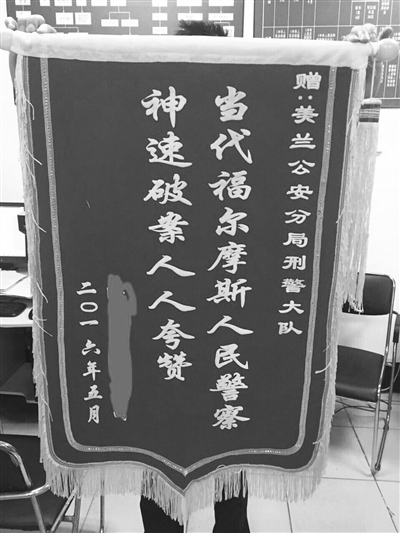 赠:美兰公安分局刑警大队
当代福尔摩斯人民警察
神速破案人人夸赞
二〇一六年五月